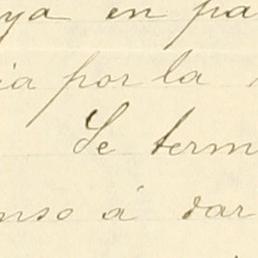 ya en pa
ia por la
Se term
nso á dar